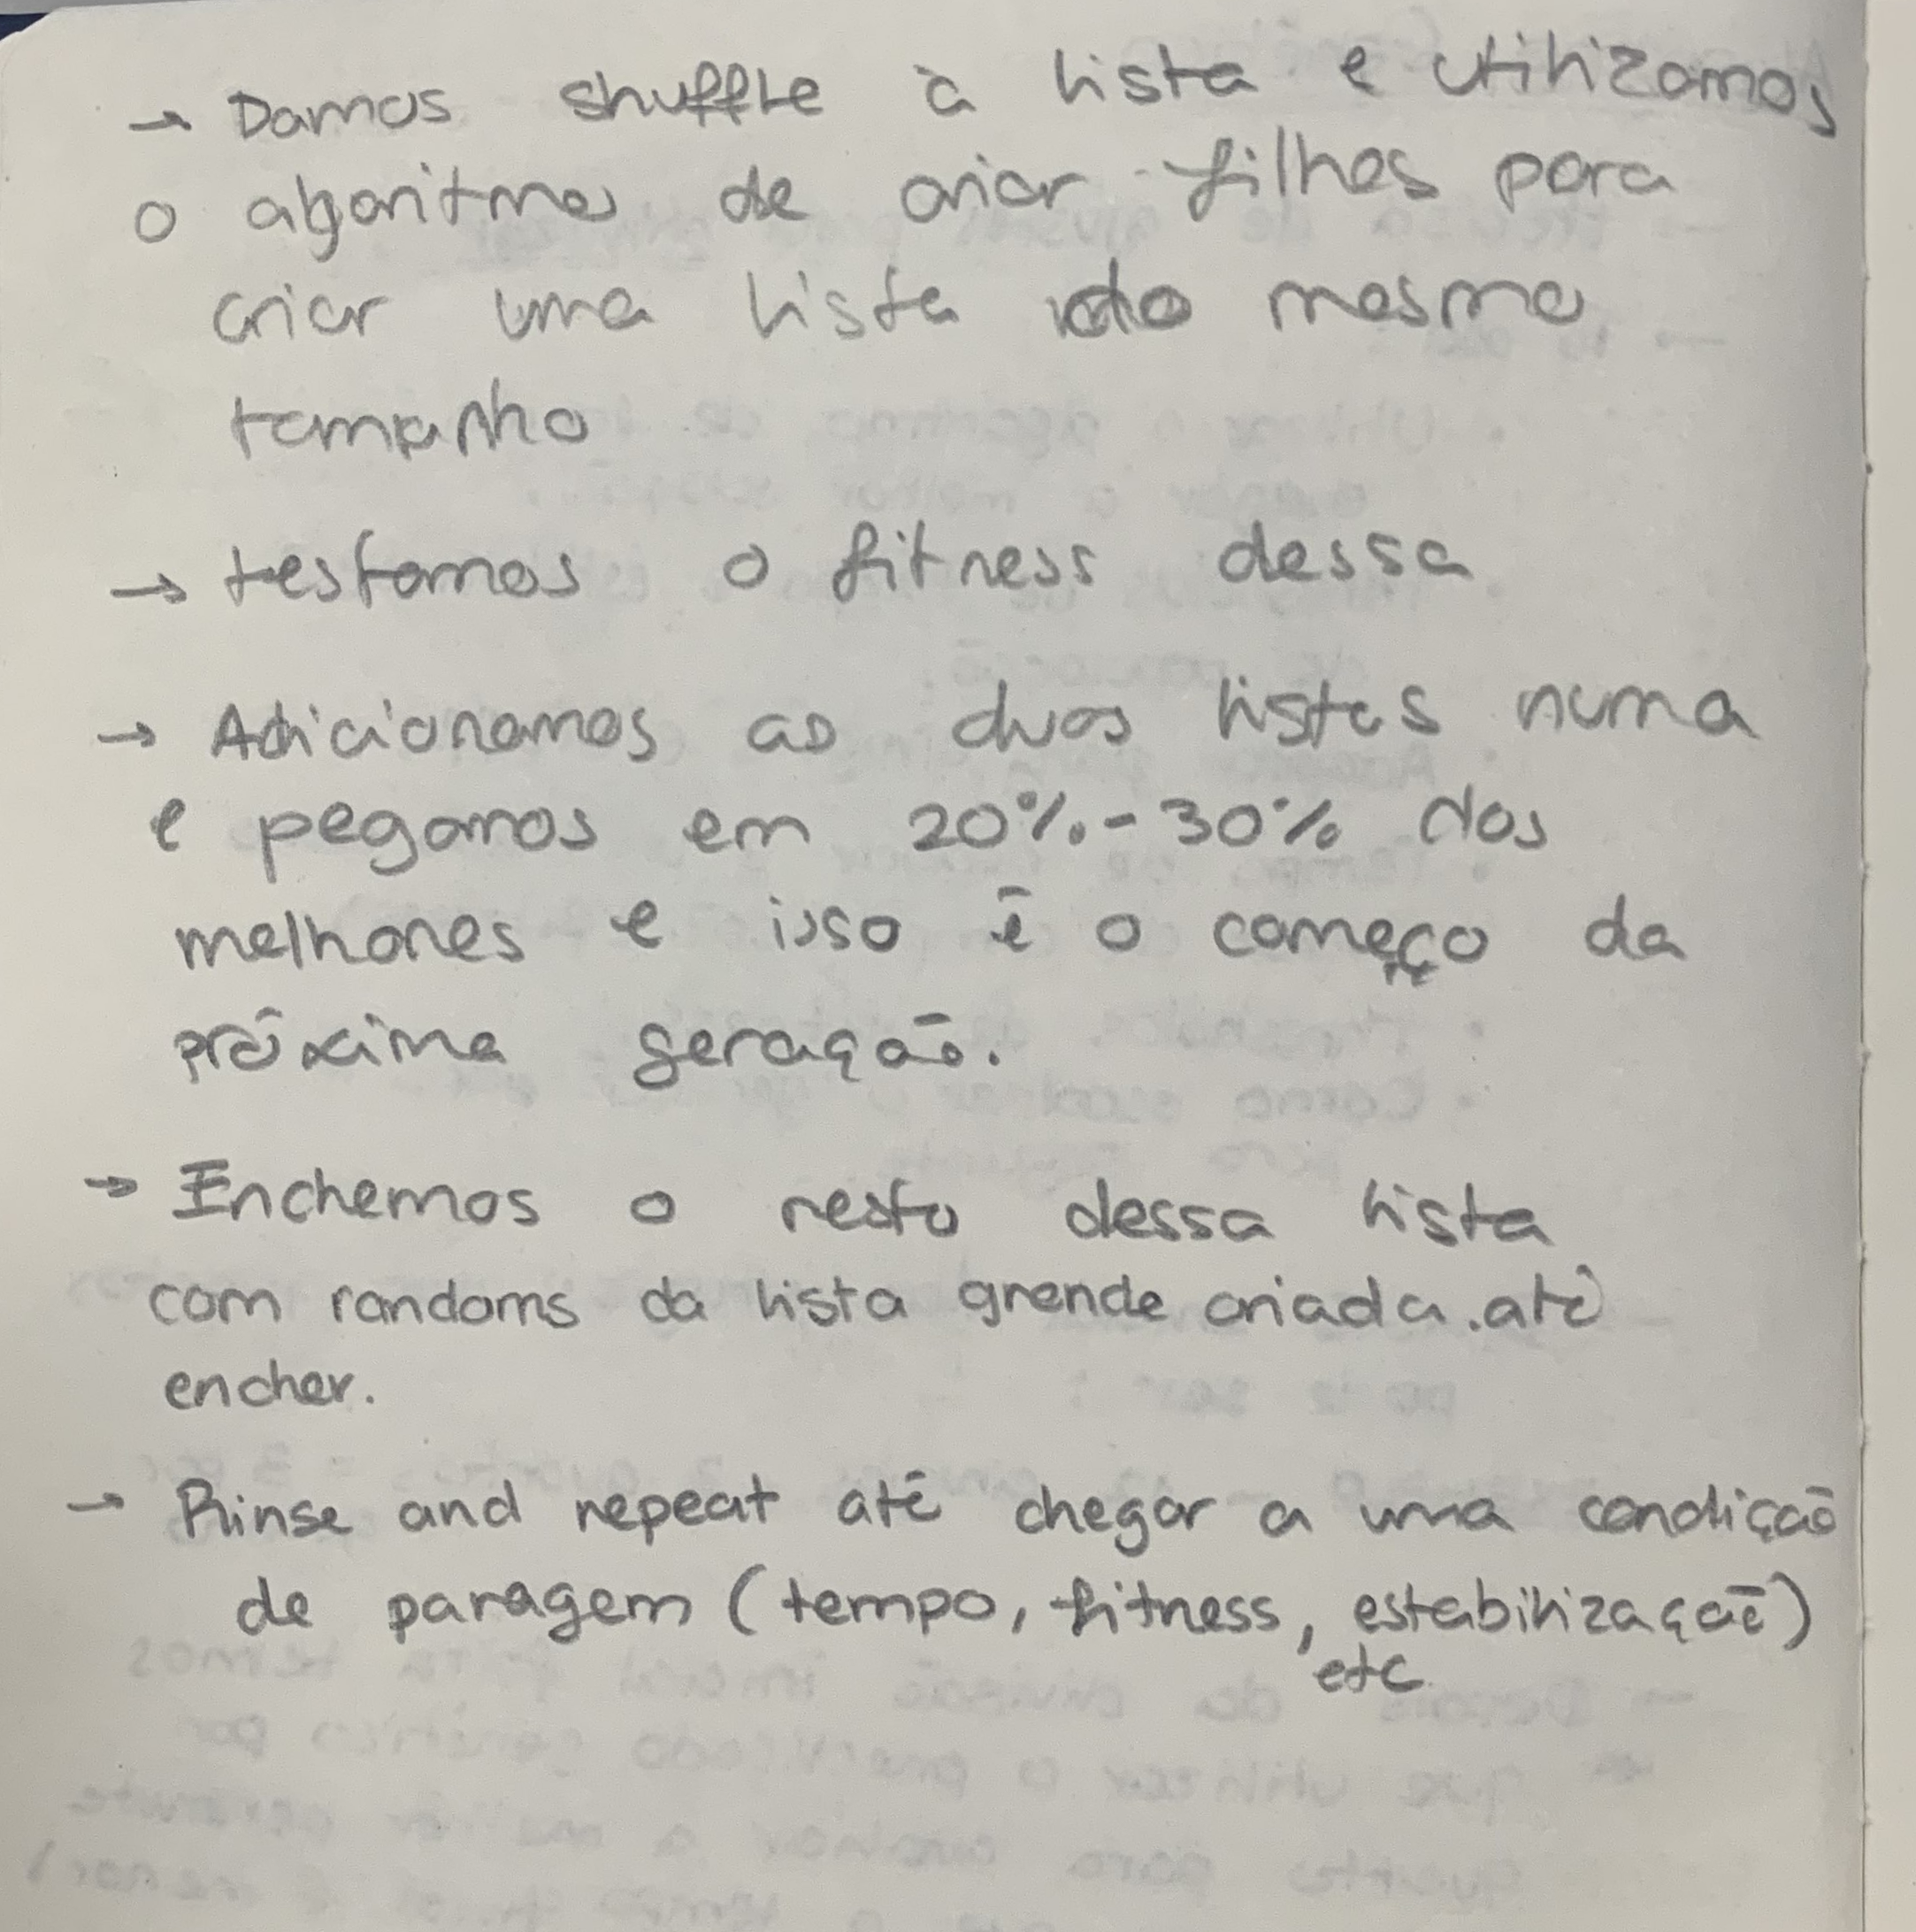 → Damos shuffle à lista e utilizamos
o algoritmo de criar filhos para
criar uma lista do mesmo
tamanho
→ testamos o fitness dessa
→ Adicionamos as duas listas numa
e pegamos em 20%-30% dos
melhores e isso é o começo da
próxima geração.
→ Enchemos o resto dessa lista
com randoms da lista grande criada.até
encher.
→ Rinse and repeat até chegar a uma condição
de paragem (tempo, fitness, estabilização)
etc